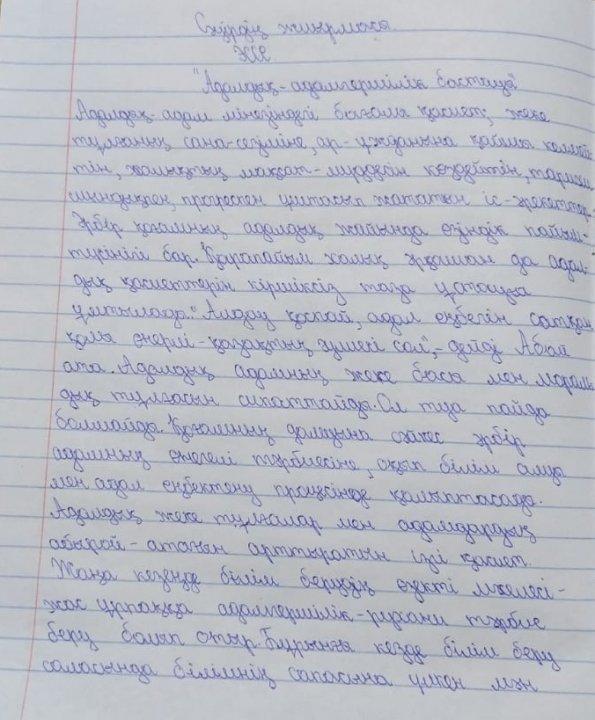 Сәуірдің жиырмасы.
ЭССЕ.
"Адалдық - адамгершілік бастауы"
Адалдық - адам мінезіндегі бағалы қасиет; жеке
тұлғаның сана-сезіміне, ар-ұжданына қайшы келмей-
тін, халықтың мақсат-мүддесін көздейтін, тарихи
шындықпен, прогреспен ұштасып жататын іс-әрекеттер.
Әрбір қоғамның адалдық жайында өзіндік пайым-
түсінігі бар. Қарапайым халық әрқашан да адал-
дық қасиеттерін кіршіксіз таза ұстауға
ұмтылады. "Алдау қоспай, адал еңбегін сатқан
қолы өнерлі - қазақтың әулиесі сол", - дейді Абай
ата. Адалдық адамның жеке басы мен мораль-
дық тұлғасын сипаттайды. Ол туа пайда
болмайды. Қоғамның дамуына сәйкес әрбір
адамның өнегелі тәрбиесіне, оқып білім алуы
мен адал еңбектену процесінде қалыптасады.
Адалдық жеке тұлғалар мен адамдардың
абырой-атағын арттыратын ізгі қасиет.
Жаңа кезеңде білім берудің өзекті мәселесі -
жас ұрпаққа адамгершілік-рухани тәрбие
беру болып отыр. Бұрынғы кезде білім беру
саласында білімнің сапасына үлкен мән